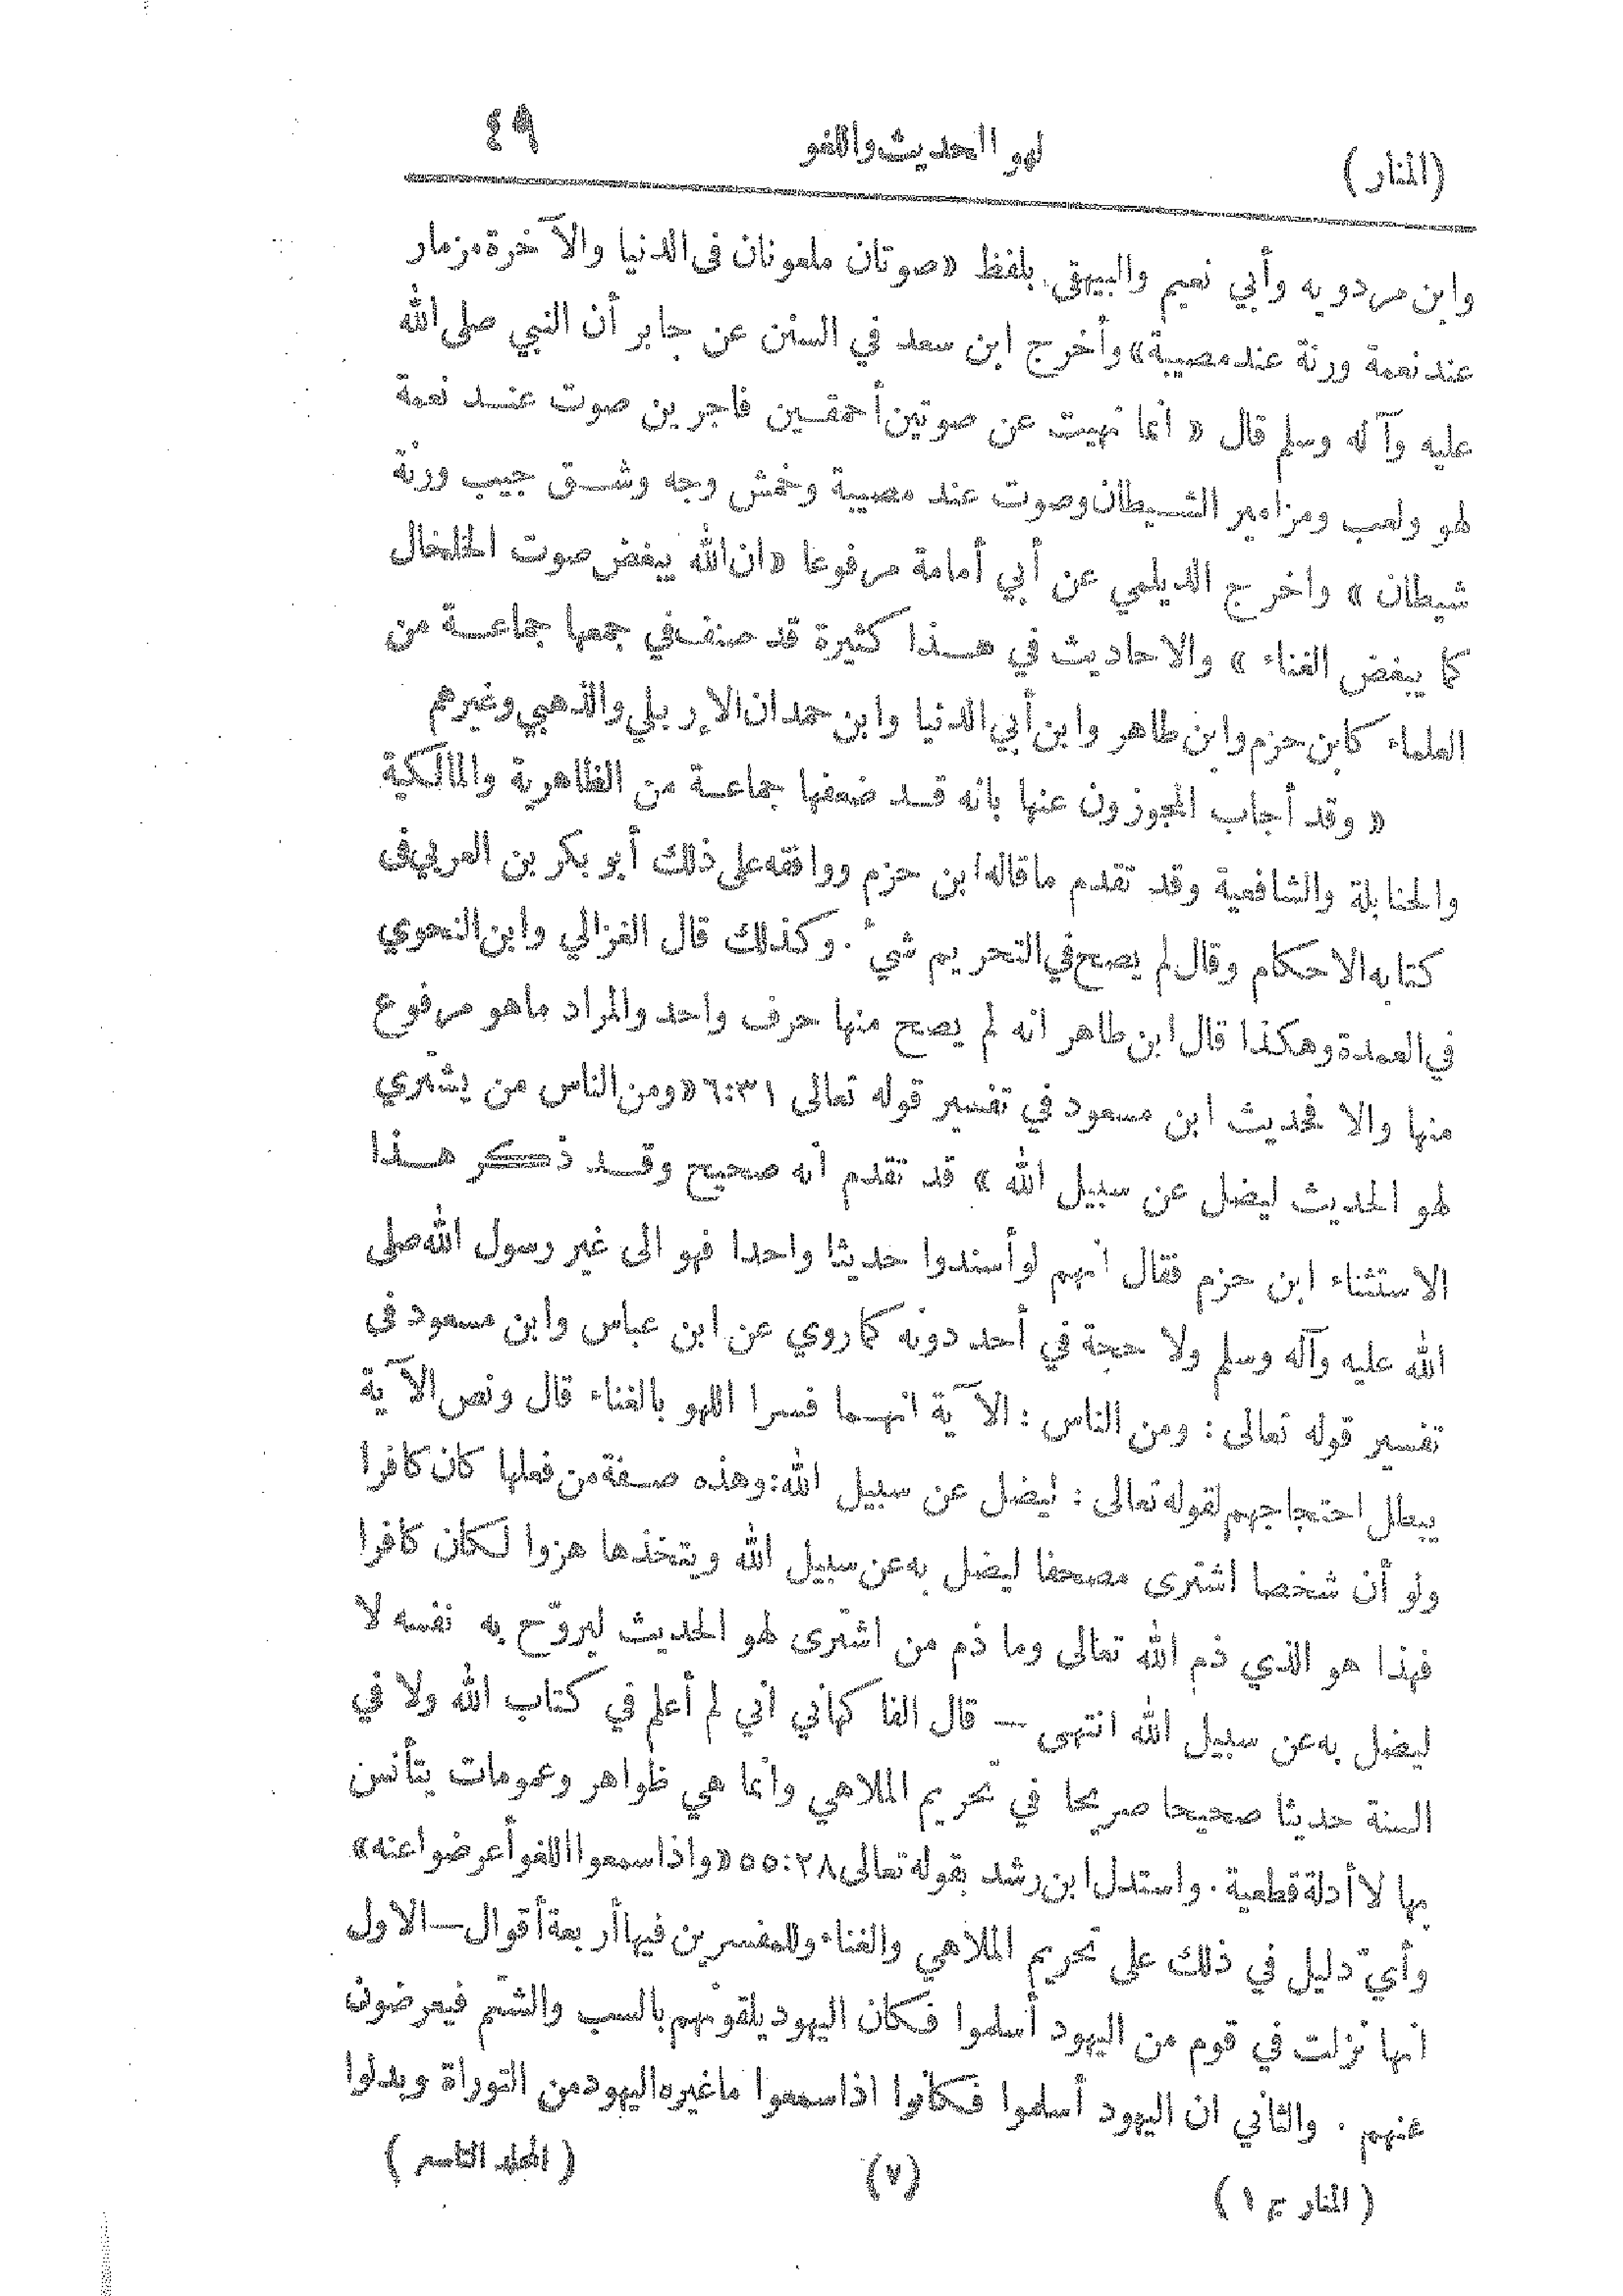 (المنار) لهو الحديث واللغو ٤٩
وابن مردويه وأبي نعيم والبيهقي بلفظ «صوتان ملعونان في الدنيا والآخرة مزمار
عند نعمة ورنة عند مصيبة» وأخرج ابن سعد في السنن عن جابر أن النبي صلى الله
عليه وآله وسلم قال « انما نهيت عن صوتين أحمقين فاجرين صوت عند نعمة
لهو ولعب ومزامير الشيطان وصوت عند مصيبة وخمش وجه وشق جيب ورنة
شيطان » واخرج الديلمي عن أبي أمامة مرفوعا « ان الله يبغض صوت الخلخال
كما يبغض الغناء » والاحاديث في هذا كثيرة قد صنف في جمعها جماعة من
العلماء كابن حزم وابن طاهر وابن أبي الدنيا وابن حمدان الإربلي والذهبي وغيرهم
« وقد أجاب المجوزون عنها بانه قد ضعفها جماعة من الظاهرية والمالكية
والحنابلة والشافعية وقد تقدم ماقاله ابن حزم ووافقه على ذلك أبو بكر بن العربي في
كتابه الاحكام وقال لم يصح في التحريم شيء . وكذلك قال الغزالي وابن النحوي
في العمدة وهكذا قال ابن طاهر انه لم يصح منها حرف واحد والمراد ماهو مرفوع
منها والا فحديث ابن مسعود في تفسير قوله تعالى ٦:٣١ «ومن الناس من يشتري
لهو الحديث ليضل عن سبيل الله » قد تقدم أنه صحيح وقد ذكر هذا
الاستثناء ابن حزم فقال انهم لو أسندوا حديثا واحدا فهو الى غير رسول الله صلى
الله عليه وآله وسلم ولا حجة في أحد دونه كما روي عن ابن عباس وابن مسعود في
تفسير قوله تعالى : ومن الناس : الآية انهما فسرا اللهو بالغناء قال ونص الآية
يبطل احتجاجهم لقوله تعالى : ليضل عن سبيل الله: وهذه صفة من فعلها كان كافرا
ولو أن شخصا اشترى مصحفا ليضل به عن سبيل الله ويتخذها هزوا لكان كافرا
فهذا هو الذي ذم الله تعالى وما ذم من اشترى لهو الحديث ليروّح به نفسه لا
ليضل به عن سبيل الله انتهى — قال الفاكهاني اني لم أعلم في كتاب الله ولا في
السنة حديثا صحيحا صريحا في تحريم الملاهي وانما هي ظواهر وعمومات يتأنس
بها لا أدلة قطعية . واستدل ابن رشد بقوله تعالى ٥٥:٢٨ «واذا سمعوا اللغو أعرضوا عنه»
وأيّ دليل في ذلك على تحريم الملاهي والغناء وللمفسرين فيها أربعة أقوال — الاول
انها نزلت في قوم من اليهود أسلموا فكان اليهود يلقونهم بالسب والشتم فيعرضون
عنهم . والثاني ان اليهود أسلموا فكانوا اذا سمعوا ماغيره اليهود من التوراة وبدلوا
(المنار ج ١) (٧) (المجلد التاسع)